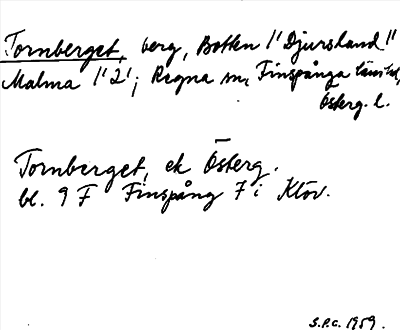 Tornberget, berg, Botten 1/1 "Djursland"
Malma 1/1 2/1; Regna sn, Finspånga läns hd,
Österg. l.
Tornberget, ek Österg.
bl. 9 F Finspång 7 i Klöv.
S.P.C. 1959.